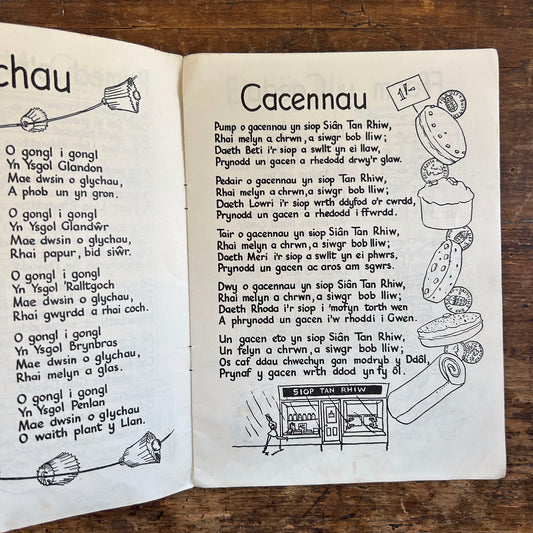 chau
O gongl i gongl
Yn Ysgol Glandon
Mae dwsin o glychau,
A phob un yn gron.
O gongl i gongl
Yn Ysgol Glandŵr
Mae dwsin o glychau,
Rhai papur, bid siŵr.
O gongl i gongl
Yn Ysgol 'Ralltgoch
Mae dwsin o glychau,
Rhai gwyrdd a rhai coch.
O gongl i gongl
Yn Ysgol Brynbras
Mae dwsin o glychau,
Rhai melyn a glas.
O gongl i gongl
Yn Ysgol Penlan
Mae dwsin o glychau
O waith plant y Llan.
Cacennau
1/-
Pump o gacennau yn siop Siân Tan Rhiw,
Rhai melyn a chrwn, a siwgr bob lliw;
Daeth Beti i'r siop a swllt yn ei llaw,
Prynodd un gacen a rhedodd drwy'r glaw.
Pedair o gacennau yn siop Siân Tan Rhiw,
Rhai melyn a chrwn, a siwgr bob lliw;
Daeth Lowri i'r siop wrth ddyfod o'r cwrdd,
Prynodd un gacen a rhedodd i ffwrdd.
Tair o gacennau yn siop Siân Tan Rhiw,
Rhai melyn a chrwn, a siwgr bob lliw;
Daeth Meri i'r siop a swllt yn ei phwrs,
Prynodd un gacen ac aros am sgwrs.
Dwy o gacennau yn siop Siân Tan Rhiw,
Rhai melyn a chrwn, a siwgr bob lliw;
Daeth Rhoda i'r siop i 'mofyn torth wen
A phrynodd un gacen i'w rhoddi i Gwen.
Un gacen eto yn siop Siân Tan Rhiw,
Un felyn a chrwn, a siwgr bob lliw;
Os caf ddau chwechyn gan modryb y Ddôl,
Prynaf y gacen wrth ddod yn fy ôl.
SIOP TAN RHIW